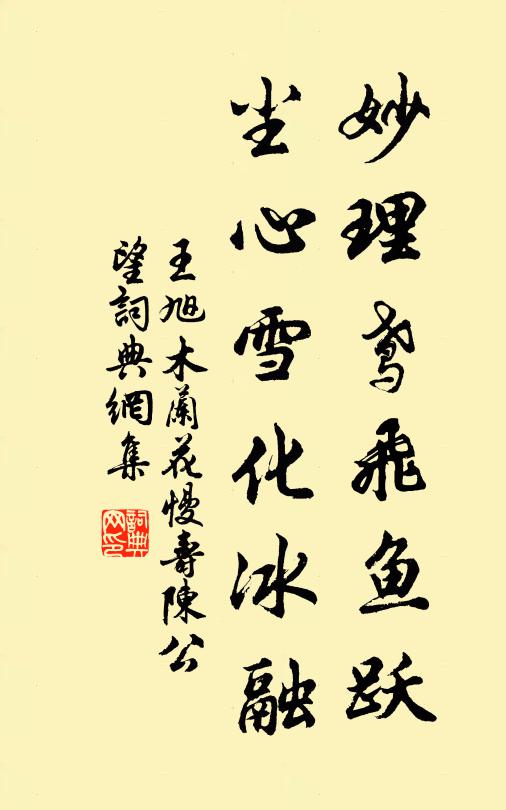 妙理鸢飞鱼跃
尘心雪化冰融
王旭木蘭花慢壽陳公
望詞典網集
詞典网印